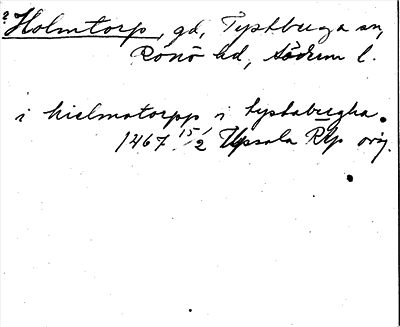 ? Holmtorp, gd, Tystberga sn,
Rönö hd, Söderm l.
i hielmatorpp i tystabergha.
1467 15/2 Upsala RAp orig.